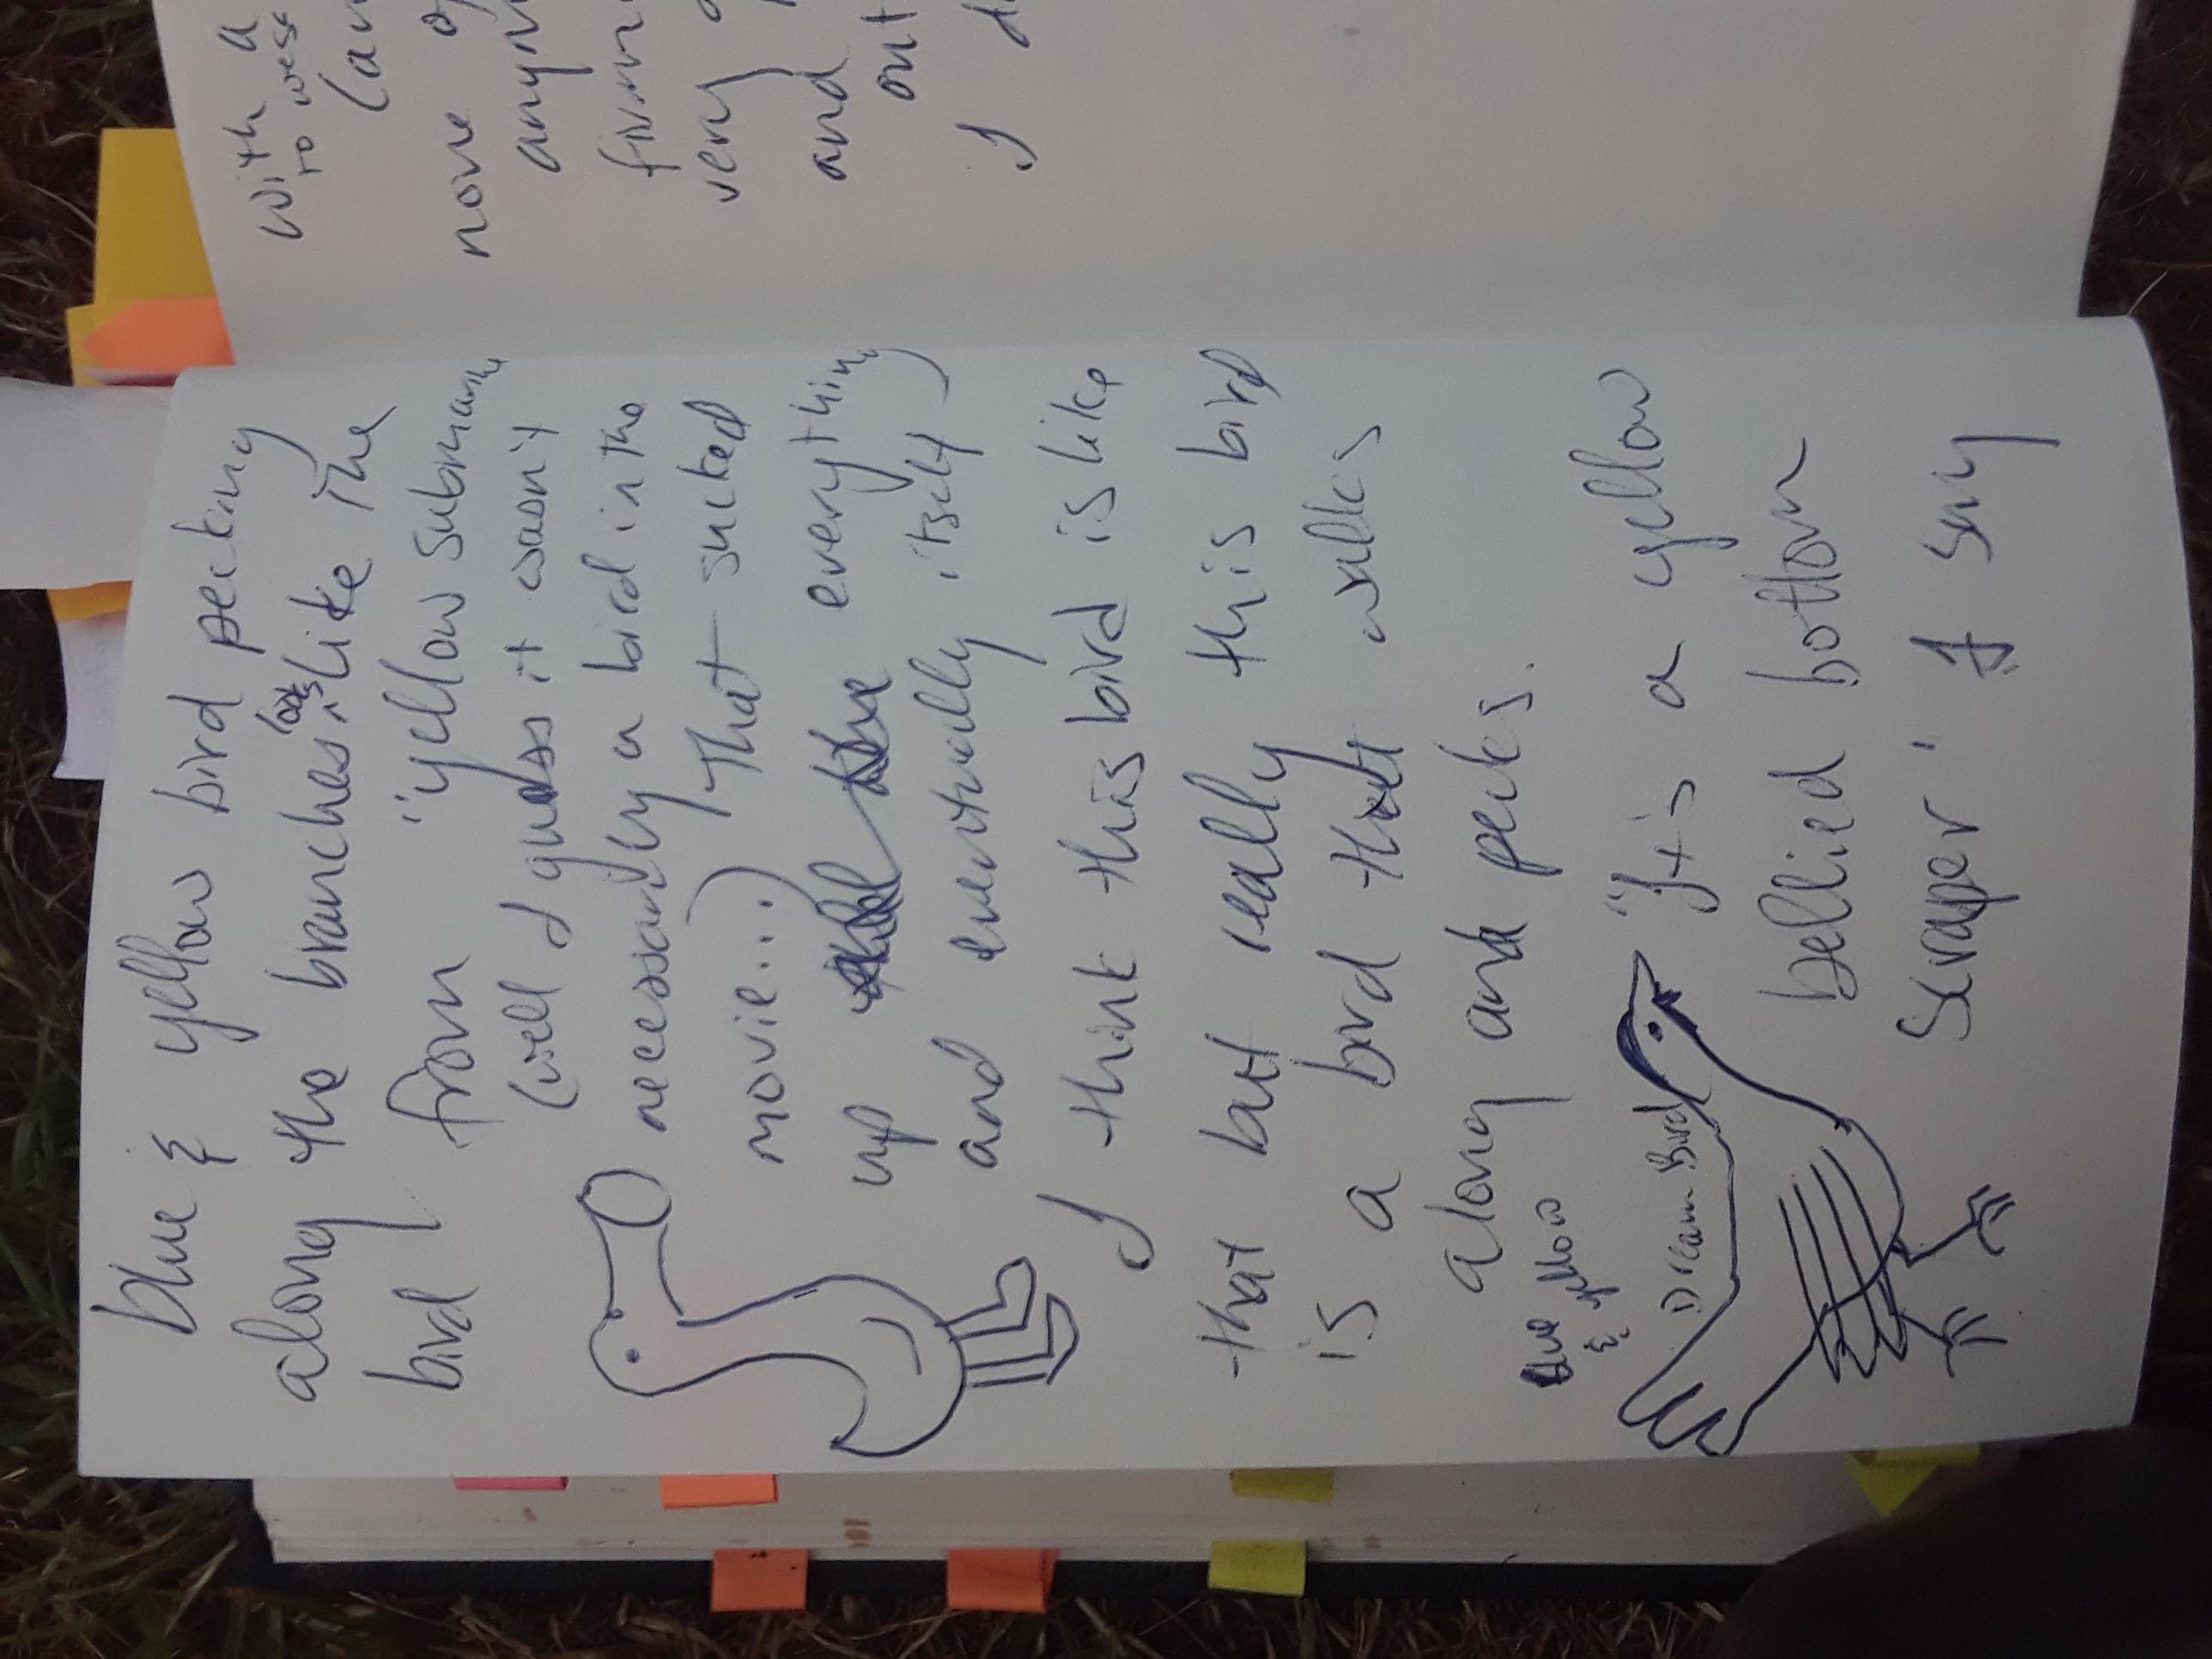 blue & yellow bird pecking
along the branches looks like the
bird from "yellow submarine
(well I guess it wasn't
necessarily a bird in the
movie...) that sucked
up everything
and eventually itself
I think this bird is like
that but really this bird
is a bird that walks
along and pecks.
blue
& yellow
Dream Bird
"It is a yellow
bellied bottom
scraper" I say
with a
to
move
and
I